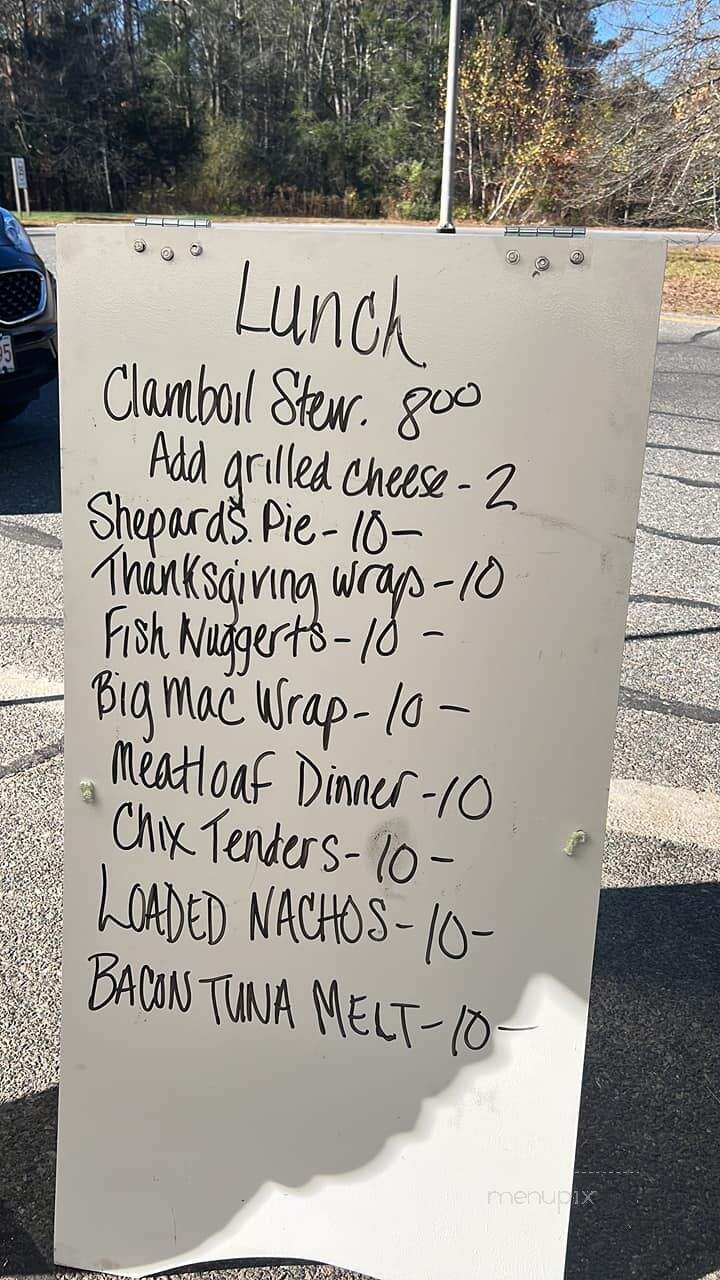 Lunch
Clamboil Stew. 800
Add grilled cheese - 2
Shepard's Pie - 10 -
Thanksgiving wraps - 10
Fish Nuggerts - 10 -
Big Mac Wrap - 10 -
Meatloaf Dinner - 10
Chix Tenders - 10 -
LOADED NACHOS - 10 -
BACON TUNA MELT - 10 -
menupix